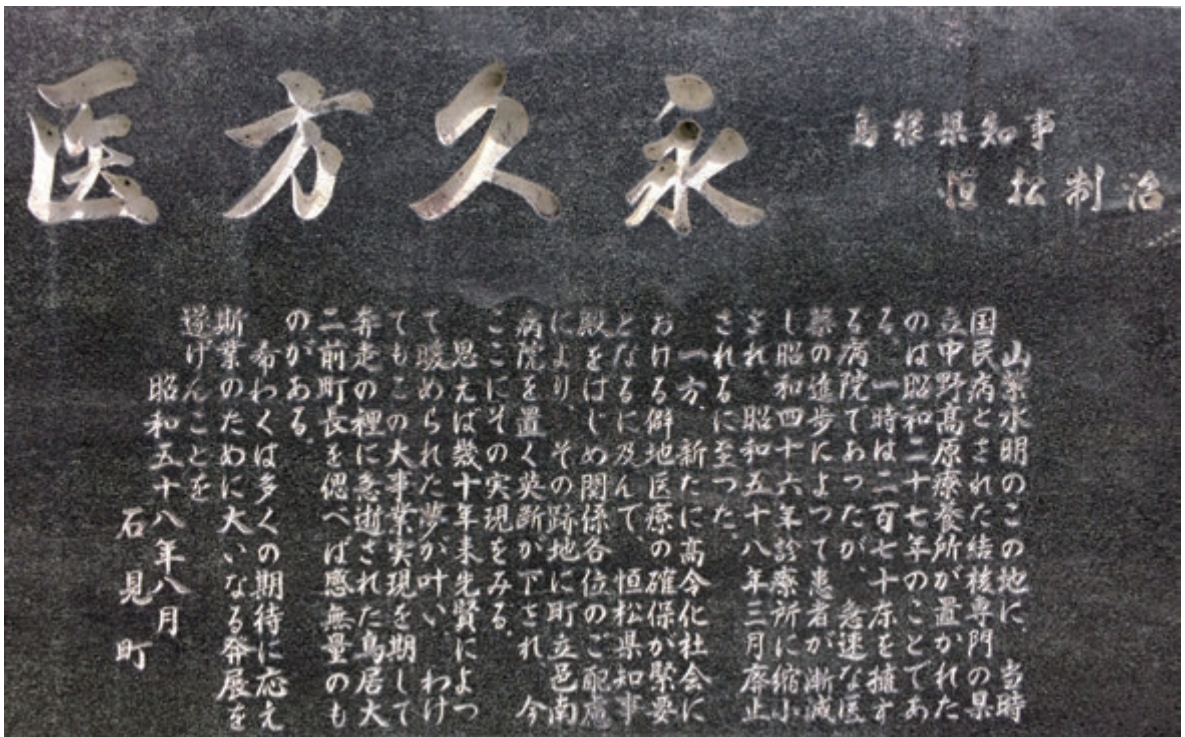 医方久永
島根県知事
恒松制治
山紫水明のこの地に、当時
国民病とされた結核専門の県
立中野高原療養所が置かれた
のは昭和二十七年のことであ
る。一時は二百七十床を擁す
る病院であつたが、急速な医
薬の進歩によつて患者が漸減
し昭和四十六年診療所に縮小
され、昭和五十八年三月廃止
されるに至つた。
一方、新たに高令化社会に
おける僻地医療の確保が緊要
となるに及んで、恒松県知事
殿をはじめ関係各位のご配慮
により、その跡地に町立邑南
病院を置く英断が下され、今
ここにその実現をみる。
思えば幾十年来先賢によつ
て暖められた夢が叶い、わけ
てもこの大事業実現を期して
奔走の裡に急逝された鳥居大
二前町長を偲べば感無量のも
のがある。
希わくは多くの期待に応え
斯業のために大いなる発展を
遂げんことを
昭和五十八年八月
石見町